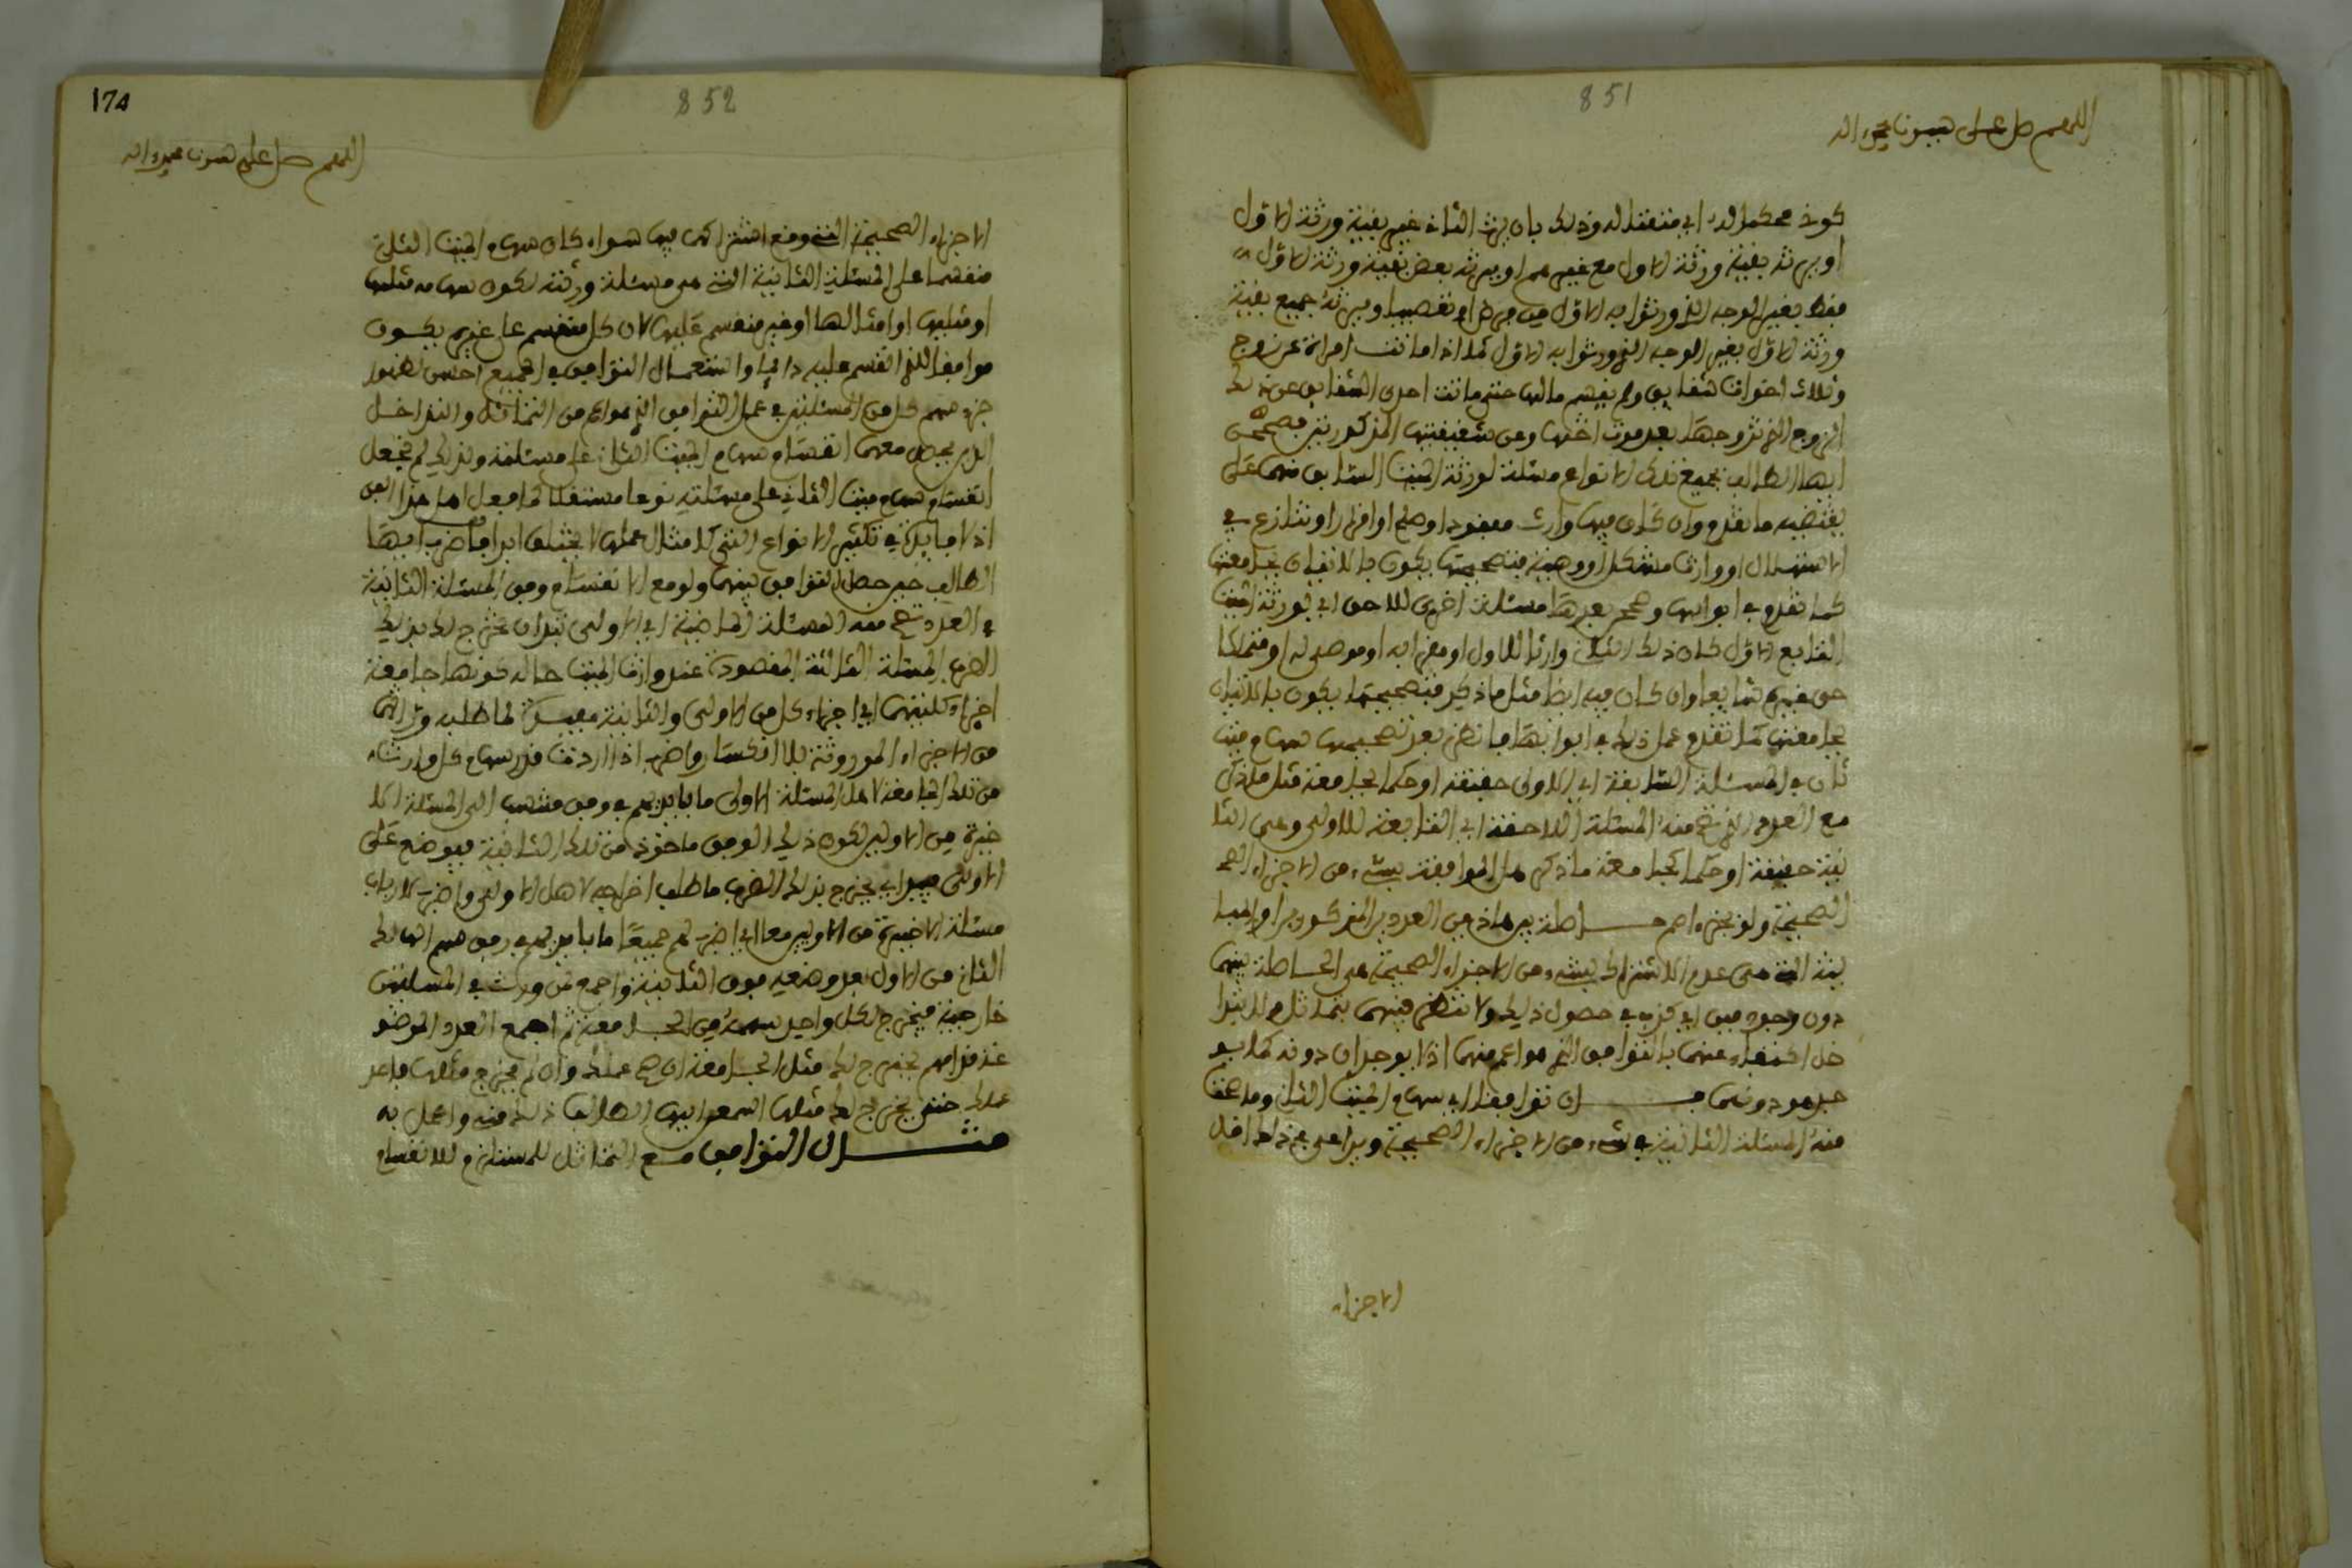 851
اللهم صل على سيدنا محمد واله
كونه محكما له اي منتقلا له وذلك بان يرث الثاني غير بقية ورثة الاول
او يرثه بقية ورثة الاول مع غيرهم او يرثه بعض بقية ورثة الاول
فقط بغير الوجه الذي ورثوا به الاول من فرض او تعصيب او يرثه جميع بقية
ورثة الاول بغير الوجه الذي ورثوا به الاول كما اذا ماتت امراة عن زوج
وثلاث اخوات شقايق ولم يقسم مالها حتى ماتت احدى الشقايق عن ذلك
الزوج الذي تزوجها بعد موت اختها وعن شقيقتيها المذكورتين فصحح
ايها الطالب بجميع تلك الانواع مسئلة لورثة الميت السابق منهما على
يقتضيه ما تقدم وان كان فيها وارث مفقود او صلح او اقرار او تنازع في
الاستهلال او وارث مشكل او وصية فتصحيحها يكون بالاتيان بجامعتها
كما تقدم في ابوابها وصحح بعدها مسئلة اخرى للاحق اي لورثة الميت
التابع الاول كان ذلك الثاني وارثا للاول او مقرا به او موصى له او متملكا
حق غيره تبايعا وان كان فيه ايضا مثل ما ذكر فتصحيحها يكون بالاتيان
بجامعتها كما تقدم عمل ذلك في ابوابها فانظر بعد تصحيحها سهام ميت
ثان في المسئلة السابقة اي الاولى حقيقة او حكما بجامعة مثل ما ذكر
مع العدد الذي صح منه المسئلة اللاحقة اي التابعة للاولى وهي الثا
نية حقيقة او حكما كجامعة ما ذكر هل الموافقة بشيء من الاجزاء الصحـ
الصحيحة ولو بجزء اصم حـاصلة بين هاذين العددين المذكورين او المبا
ينة التي هي عدم الاشتراك بشيء من الاجزاء الصحيحة هي الحاصلة بينهما
دون وجود في اي قرب في حصول ذلك ولا تنظر فيهما بتماثل ولا تدا
خل اكتفاء عنهما بالتوافق الذي هو اعم منهما اذ لا يوجدان دونه كما يو
جد هو دونهما فـان توافقا اي سهام الميت الثاني وما صحت
منه المسئلة الثانية في شيء من الاجزاء الصحيحة ويراعى في ذلك اقل
الاجزاء
174
852
اللهم صل على سيدنا محمد واله
الاجزاء الصحيحة التي وقع اشتراكهما فيها سواء كان سهام الميت الثاني
منقسما على المسئلة الثانية التي هي مسئلة ورثته لكون سهامه مثلها
او مثليها او امثالها او غير منقسم عليها لان كل منقسم على غيره يكون
موافقا للذي انقسم عليه دايما واستعمال التوافق في الجميع احسن لظهور
جزء سهم كل من المسئلتين في عمل التوافق الذي هو اعم من التماثل والتداخل
الذي يحصل معهما انقسام سهام الميت الثاني على مسئلته ولذلك لم نجعل
انقسام سهام ميت الثاني على مسئلته نوعا مستقلا كما فعل اهل هذا الفن
اذ لا فايدة في تكثير الانواع التي كامثال عملها لا يختلف ابدا فاضرب ايها
الطالب حين حصل التوافق بينهما ولو مع الانقسام وفق المسئلة الثانية
في العدد صح منه المسئلة الماضية اي الاولى تبدان يخرج لك بذلك
الضرب المسئلة الثالثة المقصودة عند وارث الميت حالة كونها جامعة
اجزاء كلتيهما اي اجزاء كل من الاولى والثانية معيسرة لما طلبه ورثتهما
من الاجزاء الموروثة بلا انكسار واضرب اذا اردت قدر سهام كل وارث شاء
من تلك الجامعة لاهل المسئلة الاولى ما بايديهم في وفق منتهى الى المسئلة الا
خيرة من الاولين لكون ذلك الوفق ماخوذ من تلك الثانية فيوضع على
الاولى فيراى يخرج بذلك الضرب ما طلب اخراجه لاهل الاولى واضرب لارباب
مسئلة الاخيرة من الاولين معا اي اضرب لهم جميعا ما بايديهم في وفق سهم الهالك
الثاني من الاول بعد وضعه فوق الثانية واجمع لمن ورث في المسئلتين
خارجيه فيخرج لكل واحد سهمه من الجـامعة ثم اجمع العدد الموضو
عند قدامهم يخرج لك مثل الجـامعة ان صح عملك وان لم يخرج مثلها فاعد
عملك حتى يخرج لك مثلها اسمعوا ايها الطالب ذلك منه واعمل به
مثـال التوافق مـع التماثل المستلزم للانقسام